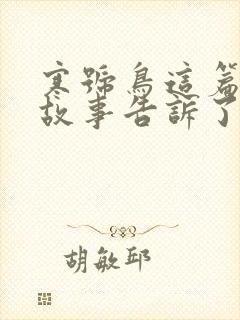 寒號鳥這篇
故事告訴了
胡敏邱